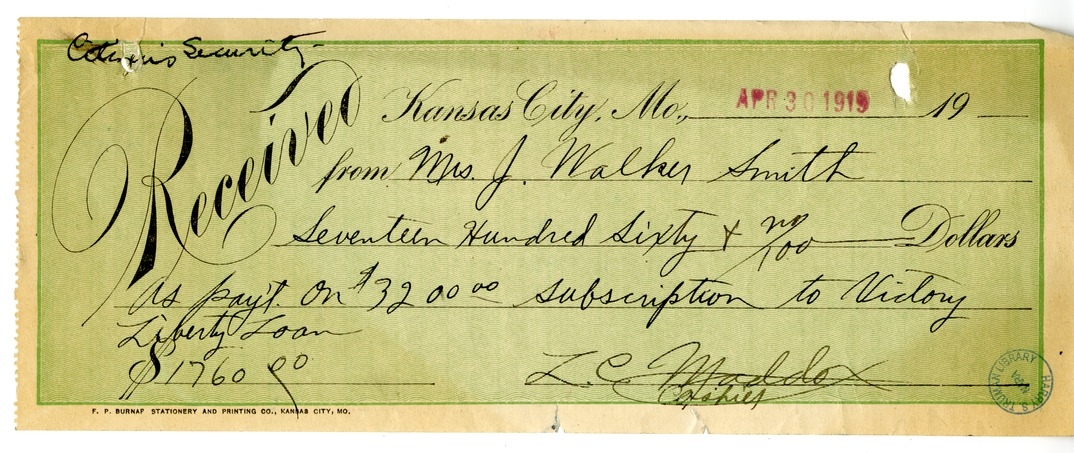 Citizens Security
Received
Kansas City, Mo., APR 30 1919 19
from Mrs. J. Walker Smith
Seventeen Hundred Sixty & no/100 Dollars
As pay't. On $3200 00 subscription to Victory
Liberty Loan
$1760 00
L. C. Maddox
Cashier
F. P. BURNAP STATIONERY AND PRINTING CO., KANSAS CITY, MO.
HARRY S. TRUMAN LIBRARY